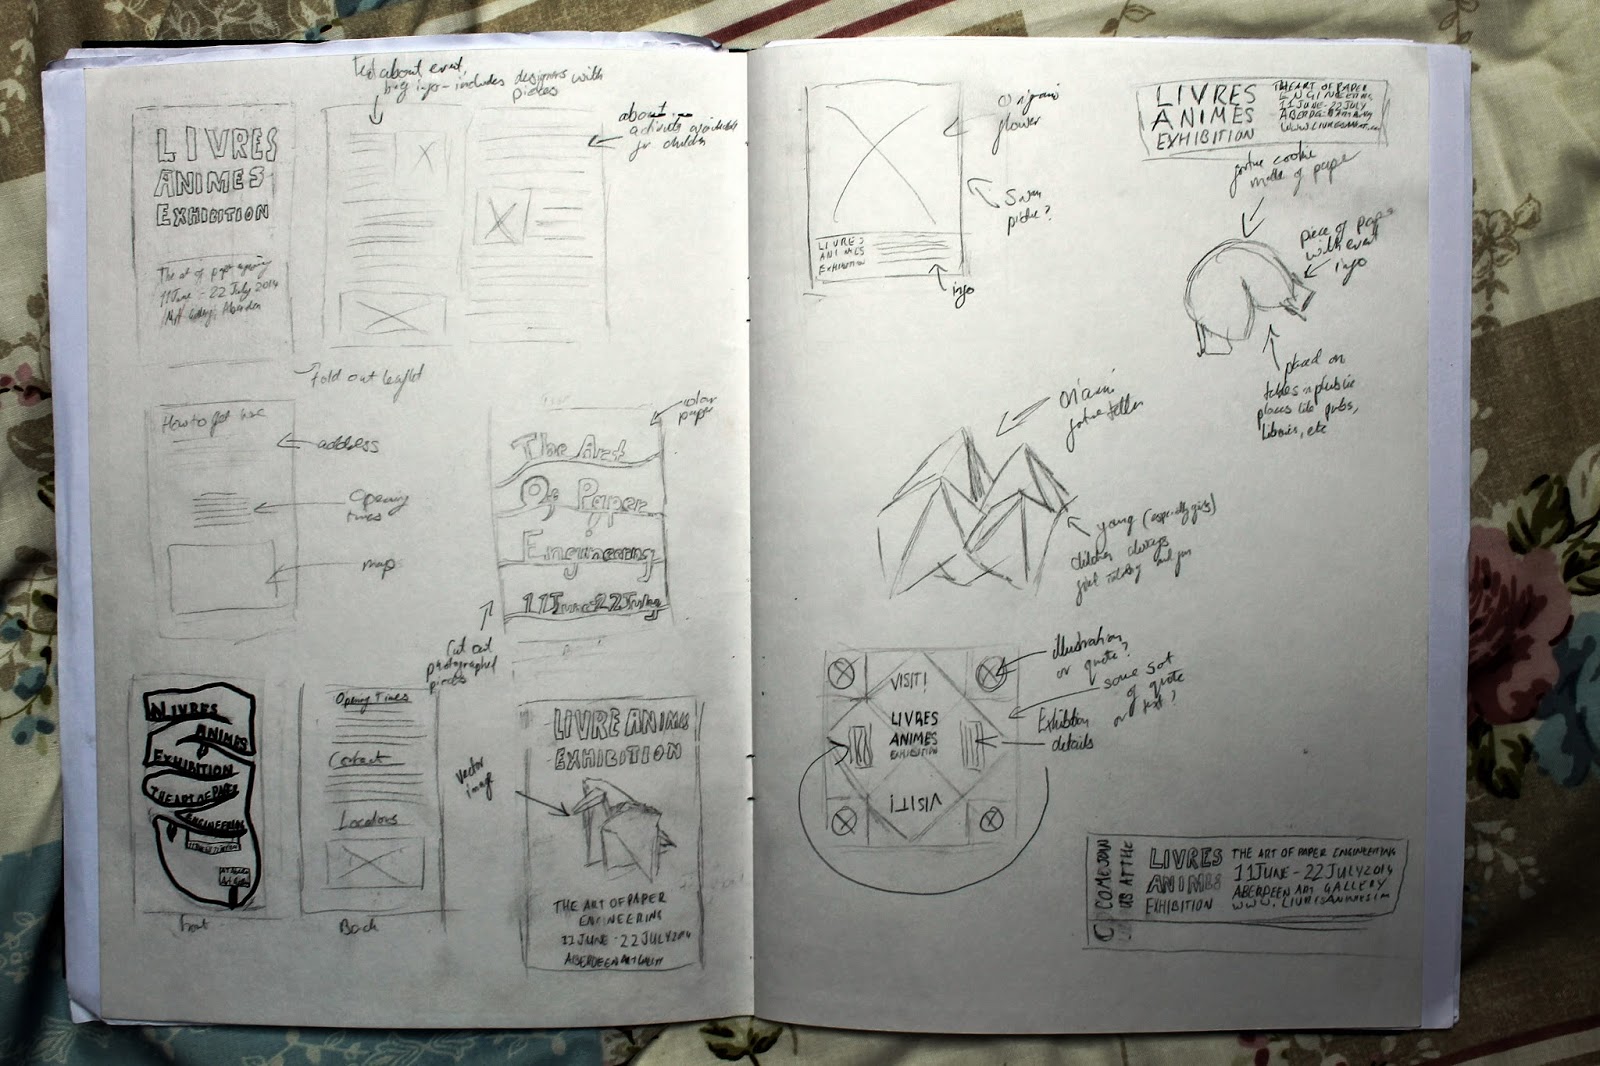 Text about event,
big info - includes designers with
pictures
about
activities available
for children
LIVRES
ANIMES
EXHIBITION
The art of paper
11 June - 22 July 2014
Art Gallery, Aberdeen
Fold out leaflet
How to get here
address
Opening
times
map
colour
paper
The Art
Of Paper
Engineering
11 June - 22 July
Cut out
photographed
pieces
LIVRES
ANIMES
EXHIBITION
THE ART OF PAPER
ENGINEERING
front
Opening Times
Contact
Locations
Back
vector
image
LIVRE ANIMES
EXHIBITION
THE ART OF PAPER
ENGINEERING
11 JUNE - 22 JULY 2014
ABERDEEN ART GALLERY
Origami
flower
Swan
picture?
LIVRES
ANIMES
EXHIBITION
info
LIVRES
ANIMES
EXHIBITION
THE ART OF PAPER
ENGINEERING
11 JUNE - 22 JULY
fortune cookie
made of paper
piece of paper
with event
info
placed on
tables in public
places like pubs,
libraries, etc
Origami
fortune teller
young (especially girls)
children always
and fun
VISIT!
LIVRES
ANIMES
EXHIBITION
VISIT!
illustration
or quote?
some sort
of quote
or text?
Exhibition
details
COME JOIN
US AT THE
LIVRES
ANIMES
EXHIBITION
THE ART OF PAPER ENGINEERING
11 JUNE - 22 JULY 2014
ABERDEEN ART GALLERY